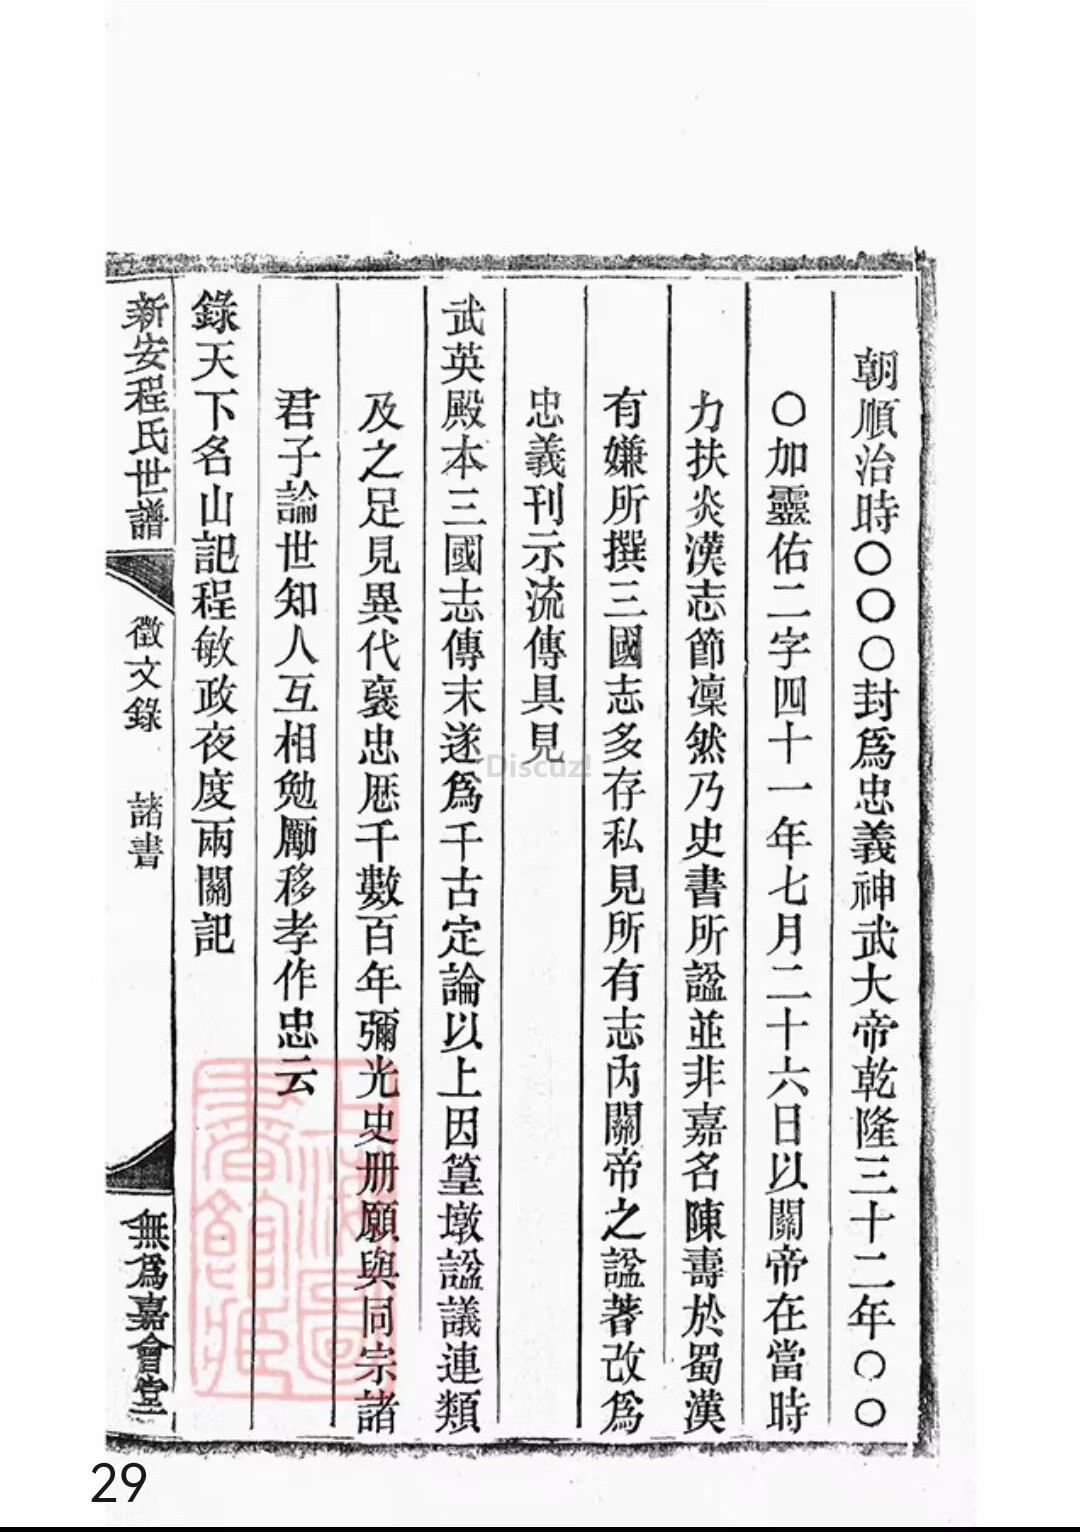 朝順治時〇〇〇封爲忠義神武大帝乾隆三十二年〇〇
〇加靈佑二字四十一年七月二十六日以關帝在當時
力扶炎漢志節凜然乃史書所諡並非嘉名陳壽於蜀漢
有嫌所撰三國志多存私見所有志內關帝之諡著改爲
忠義刊示流傳具見
武英殿本三國志傳末遂爲千古定論以上因篁墩諡議連類
及之足見異代襃忠歷千數百年彌光史册願與同宗諸
君子論世知人互相勉勵移孝作忠云
錄天下名山記程敏政夜度兩關記
新安程氏世譜
徵文錄 諸書
無爲嘉會堂
上海圖
書館藏
Discuz!
29